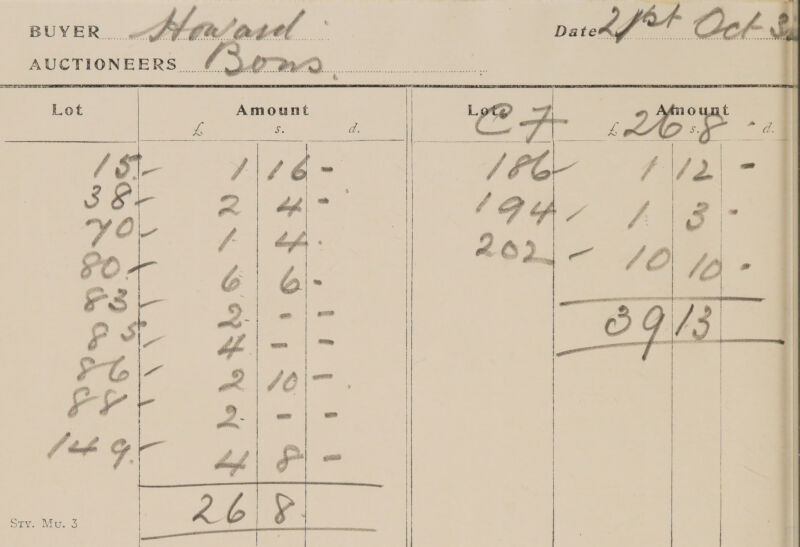 BUYER Howard
Date 21st Oct 3
AUCTIONEERS Bons.
Lot Amount
£ s. d.
15 - 1 16 -
38 - 2 4 -
70 - 1 4 .
80 - 6 6 -
83 - 2 - -
85 - 4 - -
86 - 2 10 -
88 - 2 - -
149 - 4 8 -
26 8
Sty. Mu. 3
Lot Amount
£ s. d.
C 7 26 8 -
186 - 1 12 -
194 - 1 3 -
202 - 10 10 -
39 13